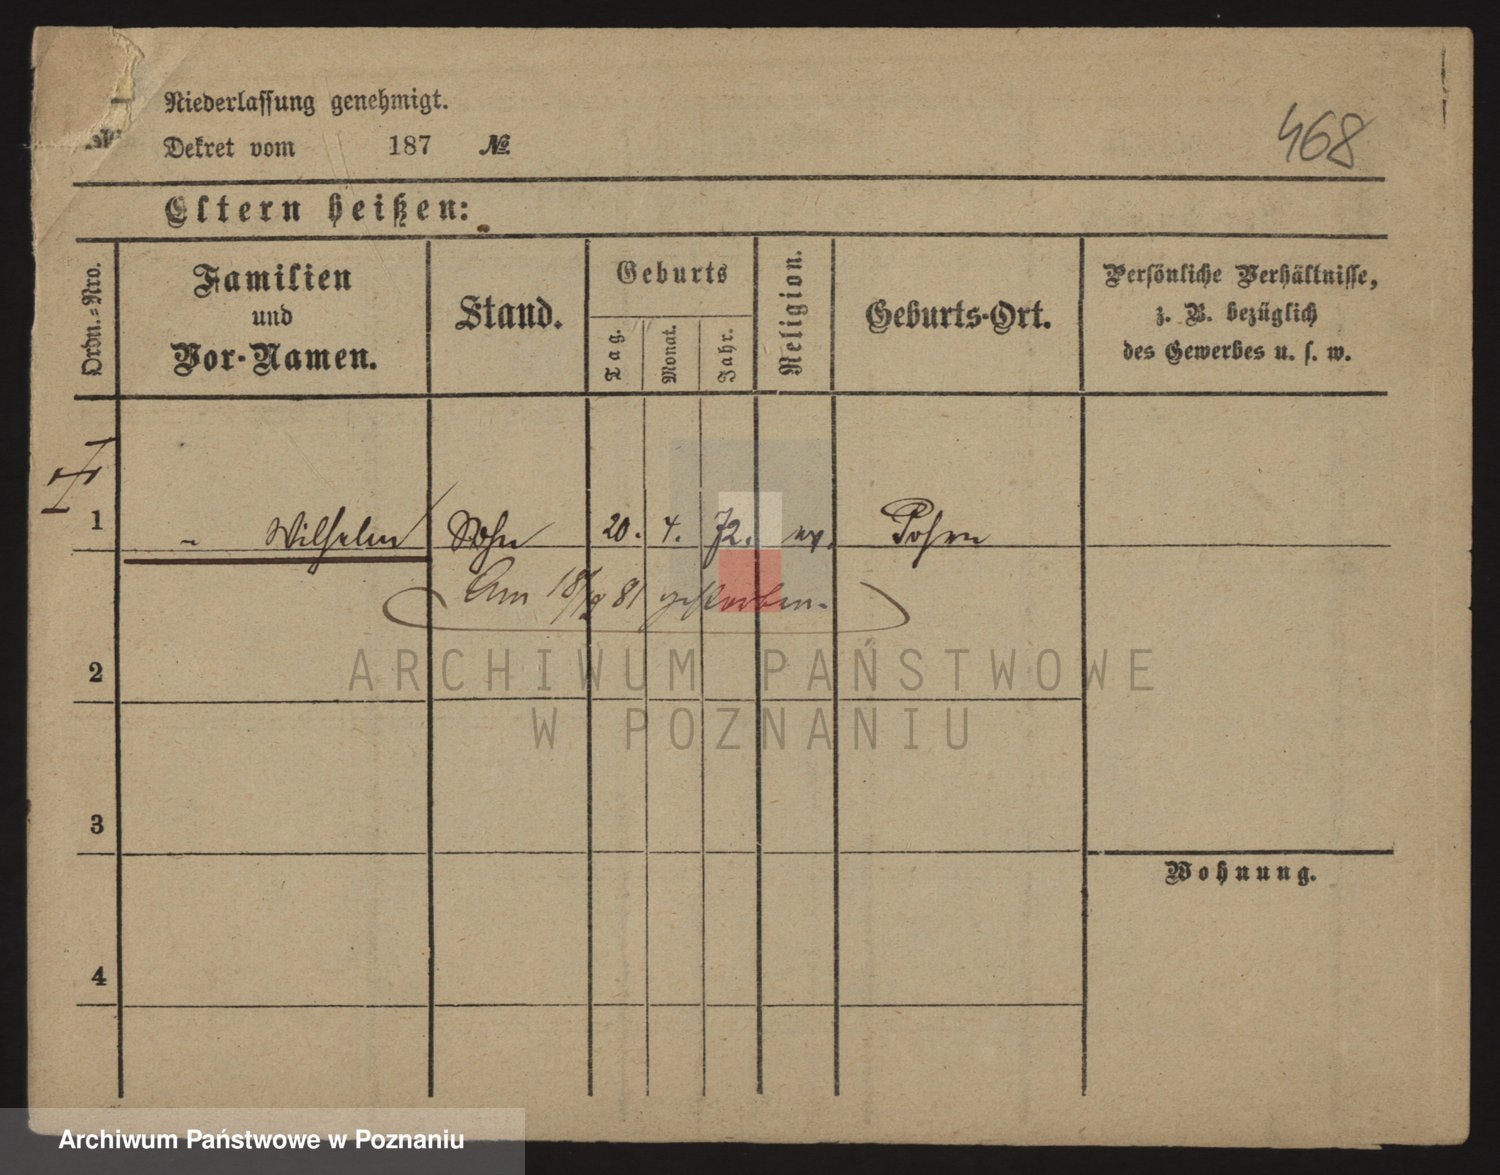 468
Niederlassung genehmigt.
Dekret vom 187 №
Eltern heißen:
Ordn.-Nro.
Familien
und
Vor-Namen.
Stand.
Geburts
Tag.
Monat.
Jahr.
Religion.
Geburts-Ort.
Persönliche Verhältnisse,
z. B. bezüglich
des Gewerbes u. s. w.
1 " Wilhelm Sohn 20. 4. 72. ev. Posen
Am 18/12 81 gestorben.
2
3
4
Wohnung.
ARCHIWUM PAŃSTWOWE
W POZNANIU
Archiwum Państwowe w Poznaniu